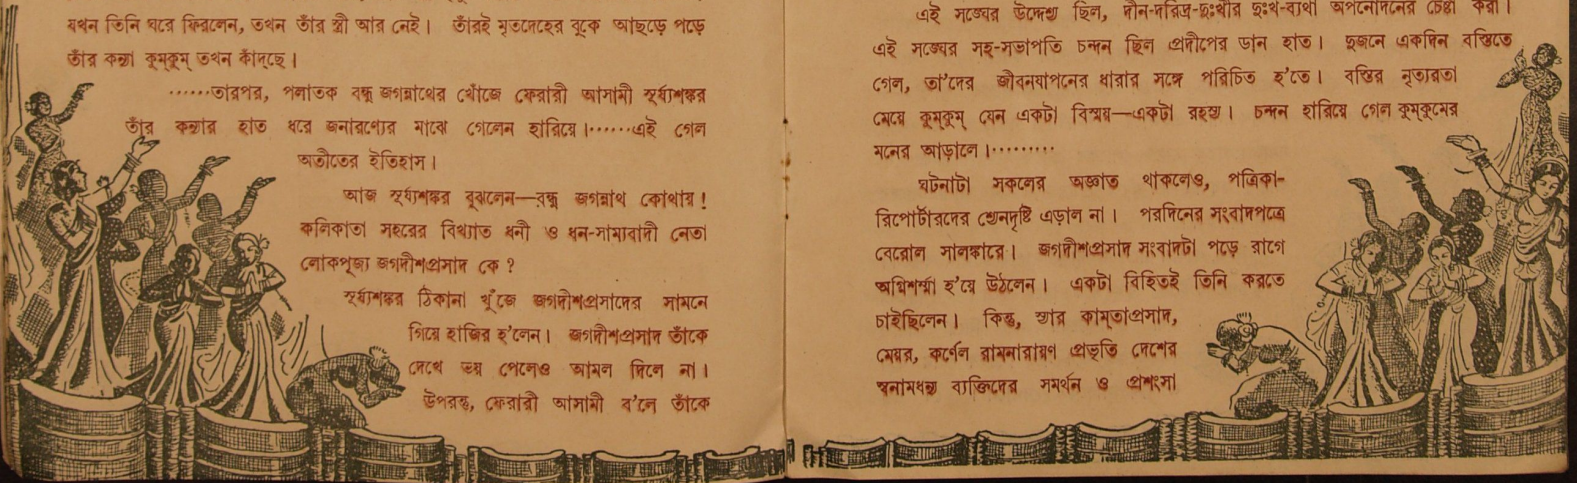 যখন তিনি ঘরে ফিরলেন, তখন তাঁর স্ত্রী আর নেই। তাঁরই মৃতদেহের বুকে আছড়ে পড়ে
তাঁর কন্যা কুম্‌কুম্ তখন কাঁদছে।
······তারপর, পলাতক বন্ধু জগন্নাথের খোঁজে ফেরারী আসামী সূর্য্যশঙ্কর
তাঁর কন্যার হাত ধরে জনারণ্যের মাঝে গেলেন হারিয়ে।······এই গেল
অতীতের ইতিহাস।
আজ সূর্য্যশঙ্কর বুঝলেন—বন্ধু জগন্নাথ কোথায়!
কলিকাতা সহরের বিখ্যাত ধনী ও ধন-সাম্যবাদী নেতা
লোকপূজ্য জগদীশপ্রসাদ কে?
সূর্য্যশঙ্কর ঠিকানা খুঁজে জগদীশপ্রসাদের সামনে
গিয়ে হাজির হ'লেন। জগদীশপ্রসাদ তাঁকে
দেখে ভয় পেলেও আমল দিলে না।
উপরন্তু, ফেরারী আসামী ব'লে তাঁকে
এই সঙ্ঘের উদ্দেশ্য ছিল, দীন-দরিদ্র-দুঃখীর দুঃখ-ব্যথা অপনোদনের চেষ্টা করা।
এই সঙ্ঘের সহ-সভাপতি চন্দন ছিল প্রদীপের ডান হাত। দুজনে একদিন বস্তিতে
গেল, তা'দের জীবনযাপনের ধারার সঙ্গে পরিচিত হ'তে। বস্তির নৃত্যরতা
মেয়ে কুম্‌কুম্ যেন একটা বিস্ময়—একটা রহস্য। চন্দন হারিয়ে গেল কুম্‌কুমের
মনের আড়ালে।·········
ঘটনাটা সকলের অজ্ঞাত থাকলেও, পত্রিকা-
রিপোর্টারদের শ্যেনদৃষ্টি এড়াল না। পরদিনের সংবাদপত্রে
বেরোল সালঙ্কারে। জগদীশপ্রসাদ সংবাদটা পড়ে রাগে
অগ্নিশর্ম্মা হ'য়ে উঠলেন। একটা বিহিতই তিনি করতে
চাইছিলেন। কিন্তু, স্যার কাম্‌তাপ্রসাদ,
মেয়র, কর্ণেল রামনারায়ণ প্রভৃতি দেশের
স্বনামধন্য ব্যক্তিদের সমর্থন ও প্রশংসা